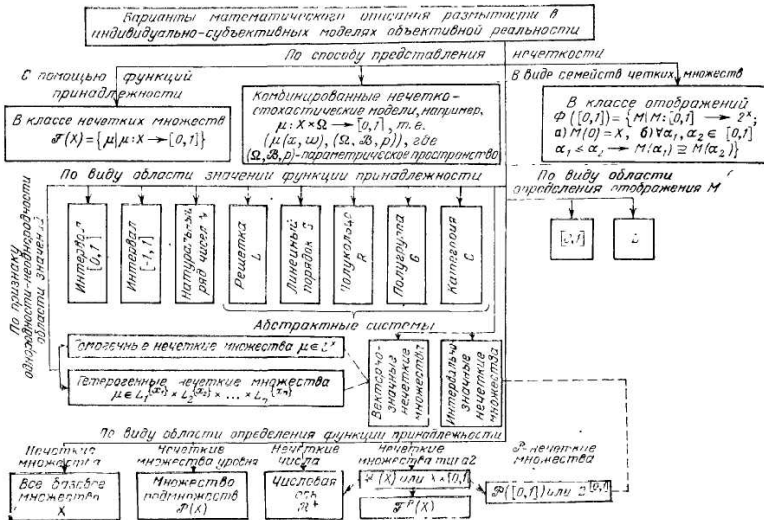 Варианты математического описания размытости в
индивидуально-субъективных моделях объективной реальности
По способу представления нечеткости
С помощью функций
принадлежности
В виде семейств четких множеств
В классе нечетких множеств
𝓕(X)={μ|μ:X→[0,1]}
Комбинированные нечетко-
стохастические модели, например,
μ:X×Ω→[0,1], т.е.
(μ(x,ω), (Ω,𝓑,p)), где
(Ω,𝓑,p)-параметрическое пространство
В классе отображений
Φ([0,1])={M|M:[0,1]→2ˣ;
а) M(0)=X, б)∀α₁,α₂∈[0,1]
α₁≤α₂→M(α₁)⊇M(α₂)}
По виду области значений функции принадлежности
По виду области
определения отображения M
По признаку
однородности-неоднородности
области значений
Интервал
[0,1]
Интервал
[-1,1]
Натуральный
ряд чисел N
Решетка
L
Линейный
порядок S
Полукольцо
R
Полугруппа
G
Категория
C
[0,1]
L
Абстрактные системы
Гомогенные нечеткие множества μ∈Lˣ
Гетерогенные нечеткие множества
μ∈L₁^{x₁}×L₂^{x₂}×...×Lₙ^{xₙ}
Векторно-
значные
нечеткие
множества
Интервально-
значные
нечеткие
множества
По виду области определения функции принадлежности
Нечеткие
множества
Нечеткие
множества уровня
Нечеткие
числа
Нечеткие
множества типа 2
𝒫-нечеткие
множества
Все базовое
множество
X
Множество
подмножеств
𝒫(X)
Числовая
ось
𝓕(X) или X×[0,1]
𝓕ᴾ(X)
𝒫([0,1]) или 2^[0,1]